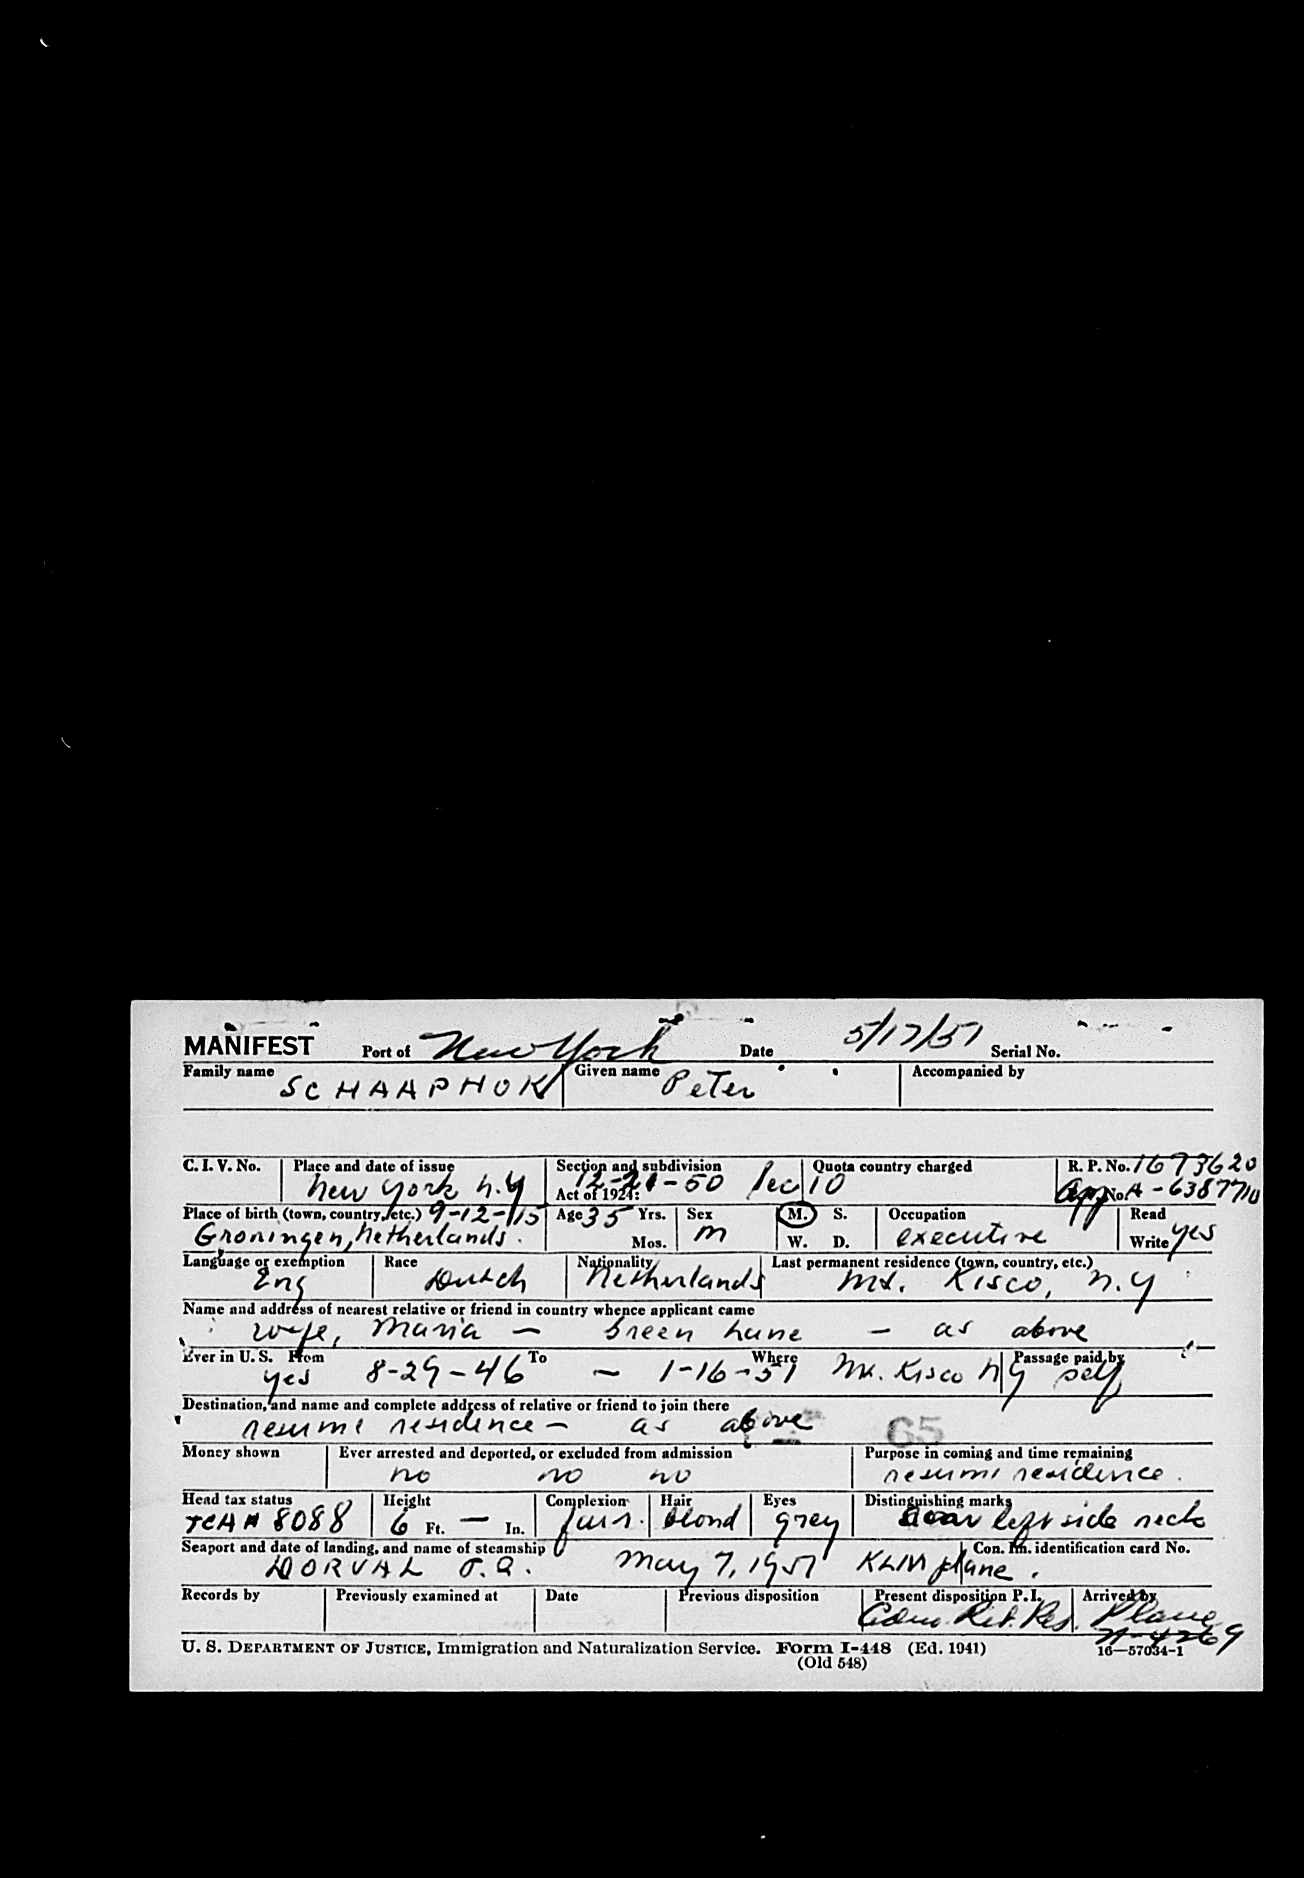 MANIFEST Port of New York Date 5/17/51 Serial No.
Family name SCHAAPHOK Given name Peter Accompanied by
C. I. V. No. Place and date of issue Section and subdivision Quota country charged R. P. No. 1673620
New York N.Y 12-21-50 Sec 10
Act of 1924: App No. A-6387710
Place of birth (town, country, etc.) 9-12-15 Age 35 Yrs. Sex M. S. Occupation Read
Groningen, Netherlands. Mos. M W. D. executive Write yes
Language or exemption Race Nationality Last permanent residence (town, country, etc.)
Eng Dutch Netherlands Mt. Kisco, N.Y
Name and address of nearest relative or friend in country whence applicant came
wife, Maria — Green Lane — as above
Ever in U. S. From To Where Passage paid by
yes 8-29-46 — 1-16-51 Mt. Kisco NY self
Destination, and name and complete address of relative or friend to join there
resume residence — as above 65
Money shown Ever arrested and deported, or excluded from admission Purpose in coming and time remaining
no no no resume residence.
Head tax status Height Complexion Hair Eyes Distinguishing marks
TCA# 8088 6 Ft. — In. fair. blond grey scar left side neck
Seaport and date of landing, and name of steamship Con. Im. identification card No.
DORVAL P.Q. May 7, 1951 KLM plane.
Records by Previously examined at Date Previous disposition Present disposition P. I. Arrived by
Adm. Ret. Res. Plane
U. S. DEPARTMENT OF JUSTICE, Immigration and Naturalization Service. Form I-448 (Ed. 1941) 16—57034-1
(Old 548)